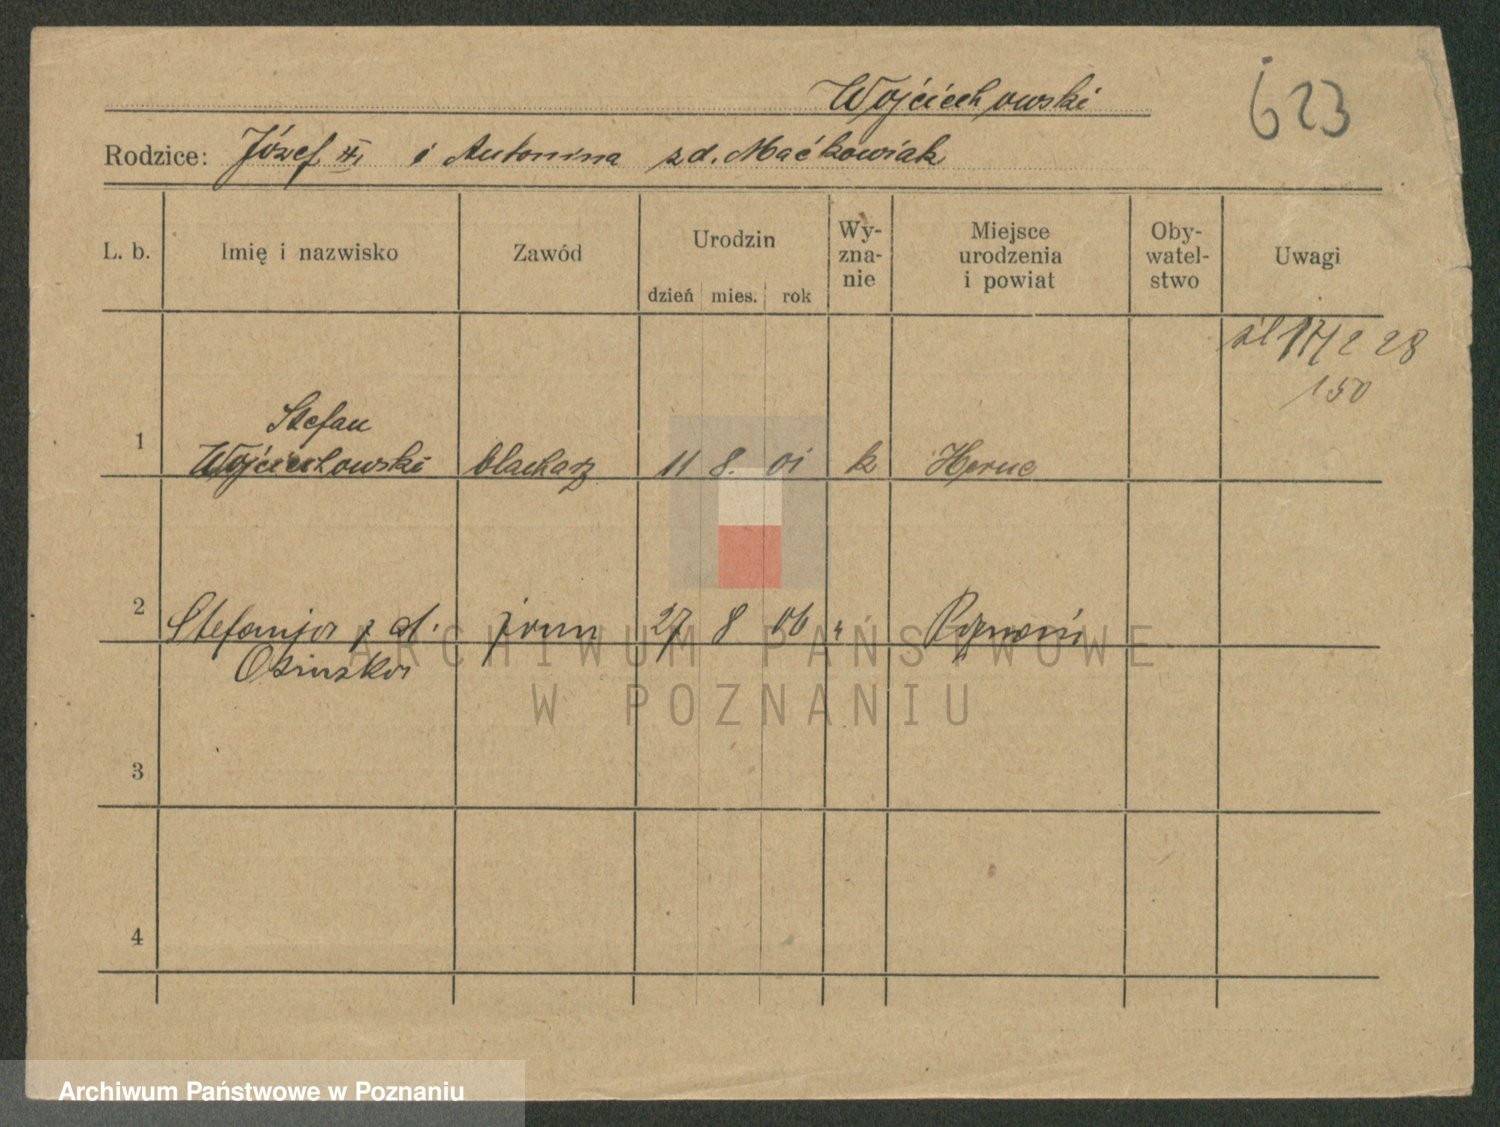 Wojciechowski
623
Rodzice: Józef i Antonina zd. Maćkowiak
L. b. Imię i nazwisko Zawód Urodzin dzień mies. rok Wy-zna-nie Miejsce urodzenia i powiat Oby-watel-stwo Uwagi
śl 17/2 28
150
Stefan
1 Wojciechowski blacharz 11 8. 01 k Herne
2 Stefanja z d. żona 27 8 06 " Poznań
Osinska
3
4
ARCHIWUM PAŃSTWOWE
W POZNANIU
Archiwum Państwowe w Poznaniu